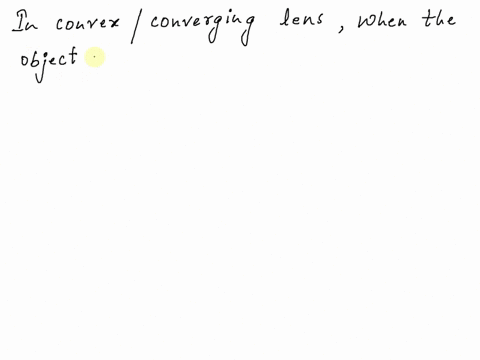 In convex / converging lens , when the
object